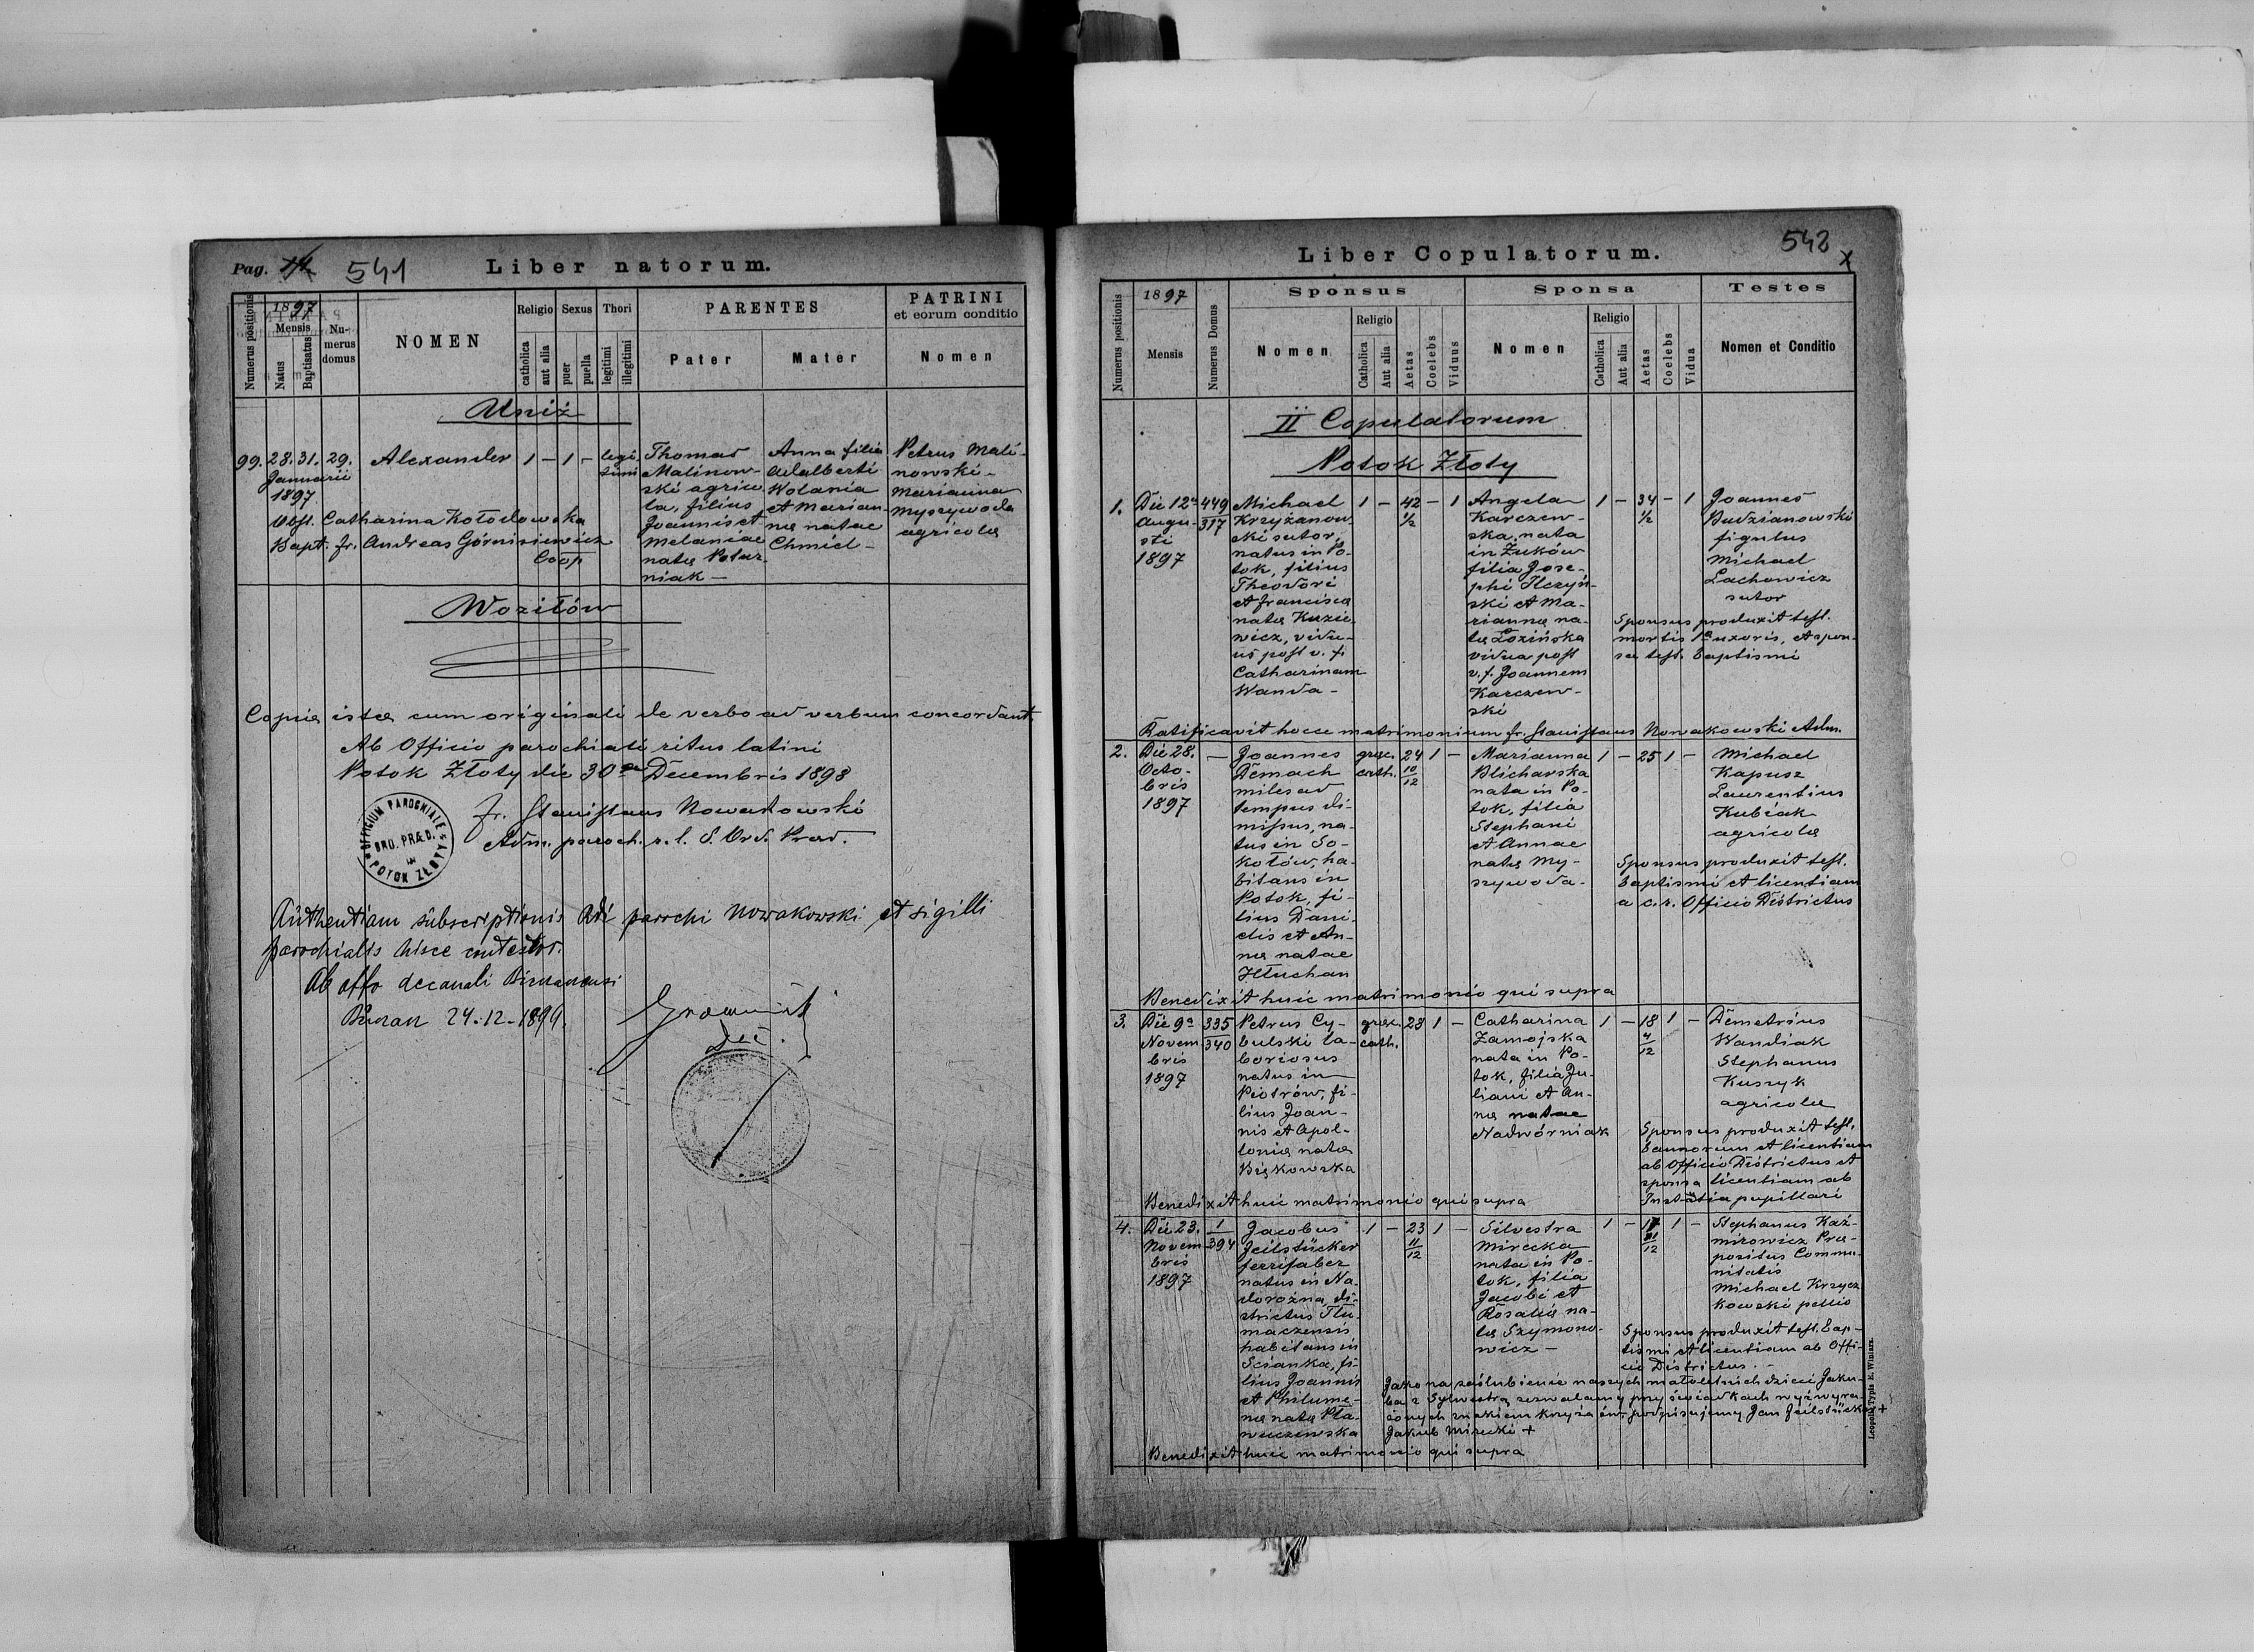 Pag. 541 Liber natorum.
Numerus positionis
1897
Mensis
Natus
Baptisatus
Numerus domus
NOMEN
Religio
catholica
aut alia
Sexus
puer
puella
Thori
legitimi
illegitimi
PARENTES
Pater
Mater
PATRINI
et eorum conditio
Nomen
Uniż
99. 28. 31. 29.
Januarii
1897
Alexander 1 – 1 – legi
timi
Thomas
Malinow-
ski agrico
la, filius
Joannis et
Melaniae
natae
niak –
Anna filia
Adalberti
Wolania
et Marian-
nae natae
Chmiel –
Petrus Mali-
nowski –
Marianna
Myszywoda
agricolae
Obst. Catharina Kołodowska
Bapt. fr. Andreas Górnisiewicz
Coop
Woziłów
Copia ista cum originali de verbo ad verbum concordant.
Ab Officio parochiali ritus latini
Potok Złoty die 30 Decembris 1898
fr. Stanislaus Nowakowski
Adm. paroch. r. l. S. Ord. Praed.
OFFICIUM PAROCHIALE
ORD. PRÆD.
IN
POTOK ZŁOTY
Authentiam subscriptionis Rdi parochi Nowakowski et sigilli
parochialis hisce contestor.
Ab offo decanali
24.-12.-1899.
Dec.
542
Liber Copulatorum.
Numerus positionis
1897
Mensis
Numerus Domus
Sponsus
Nomen
Religio
Catholica
Aut alia
Aetas
Coelebs
Viduus
Sponsa
Nomen
Religio
Catholica
Aut alia
Aetas
Coelebs
Vidua
Testes
Nomen et Conditio
II Copulatorum
Potok Złoty
1. Die 12a
Augu-
sti
1897
449
317
Michael
Krzyżanow
ski sutor,
natus in Po-
tok, filius
Theodori
et Francisca
natae Kuzie
wicz, vidu-
us post v. f.
Catharinam
Wanda –
1 – 42 1/2 – 1
Angela
Karczew-
ska, nata
in Żuków
filia Jose-
phi Ilczyń-
ski et Ma-
riannae na-
tae Łozińska
vidua post
v. f. Joannem
Karczew-
ski
1 – 34 1/2 – 1
Joannes
Budzianowski
figulus
Michael
Lachowicz
sutor
Sponsus produxit test.
mortis 1ae uxoris, et spon-
sa test. baptismi
Ratificavit hocce matrimonium fr. Stanislaus Nowakowski Adm.
2. Die 28.
Octo-
bris
1897
–
Joannes
Demach
miles ad
tempus di-
missus, na-
tus in So-
kołów, ha-
bitans in
Potok, fi-
lius Dani-
elis et An-
nae natae
Hłuchan
graec.
cath.
24 10/12 1 –
Marianna
Blicharska
nata in Po-
tok, filia
Stephani
et Annae
natae My-
szywoda –
1 – 25 1 –
Michael
Kapusz
Laurentius
Kubiak
agricolae
Sponsus produxit test.
baptismi et licentiam
a c. r. Officio Districtus
Benedixit huic matrimonio qui supra
3. Die 9a
Novem
bris
1897
335
340
Petrus Cy-
bulski la-
boriosus
natus in
Piotrów, fi-
lius Joan-
nis et Apol-
loniae natae
Biskowska
graec.
cath.
28 1 –
Catharina
Zamojska
nata in Po-
tok, filia Ju-
liani et An-
nae natae
Nadwórniak
1 – 18 4/12 1 –
Demetrius
Wandiak
Stephanus
Kuszyk
agricolae
Sponsus produxit test.
bannorum et licentiam
ab Officio Districtus et
sponsa licentiam ab
Instantia pupillari
Benedixit huic matrimonio qui supra
4. Die 23.
Novem
bris
1897
1
394
Jacobus
Zeilstücker
ferrifaber
natus in Na-
dorożna, di-
strictus Tłu-
maczensis
habitans in
Ścianka, fi-
lius Joannis
et Philume-
nae natae Pta-
wuczewska
1 – 23 11/12 1 –
Silvestra
Mirecka
nata in Po-
tok, filia
Jacobi et
Rosaliae na-
tae Szymono-
wicz –
1 – 17 11/12 1 –
Stephanus Kaź-
mirowicz Prae-
positus Commu-
nitatis
Michael Krzycz
kowski pellio
Sponsus produxit test. bap-
tismi et licentiam ab Offi-
cio Districtus. –
Jako na zaślubienie naszych małoletnich dzieci Jaku-
ba z Sylwestrą zezwalamy przy świadkach wyżwyra-
żonych znakiem krzyża św. podpisujemy Jan Zeilstücker +
Jakub Mirecki +
Benedixit huic matrimonio qui supra
Leopoli, Typis E. Winiarz.